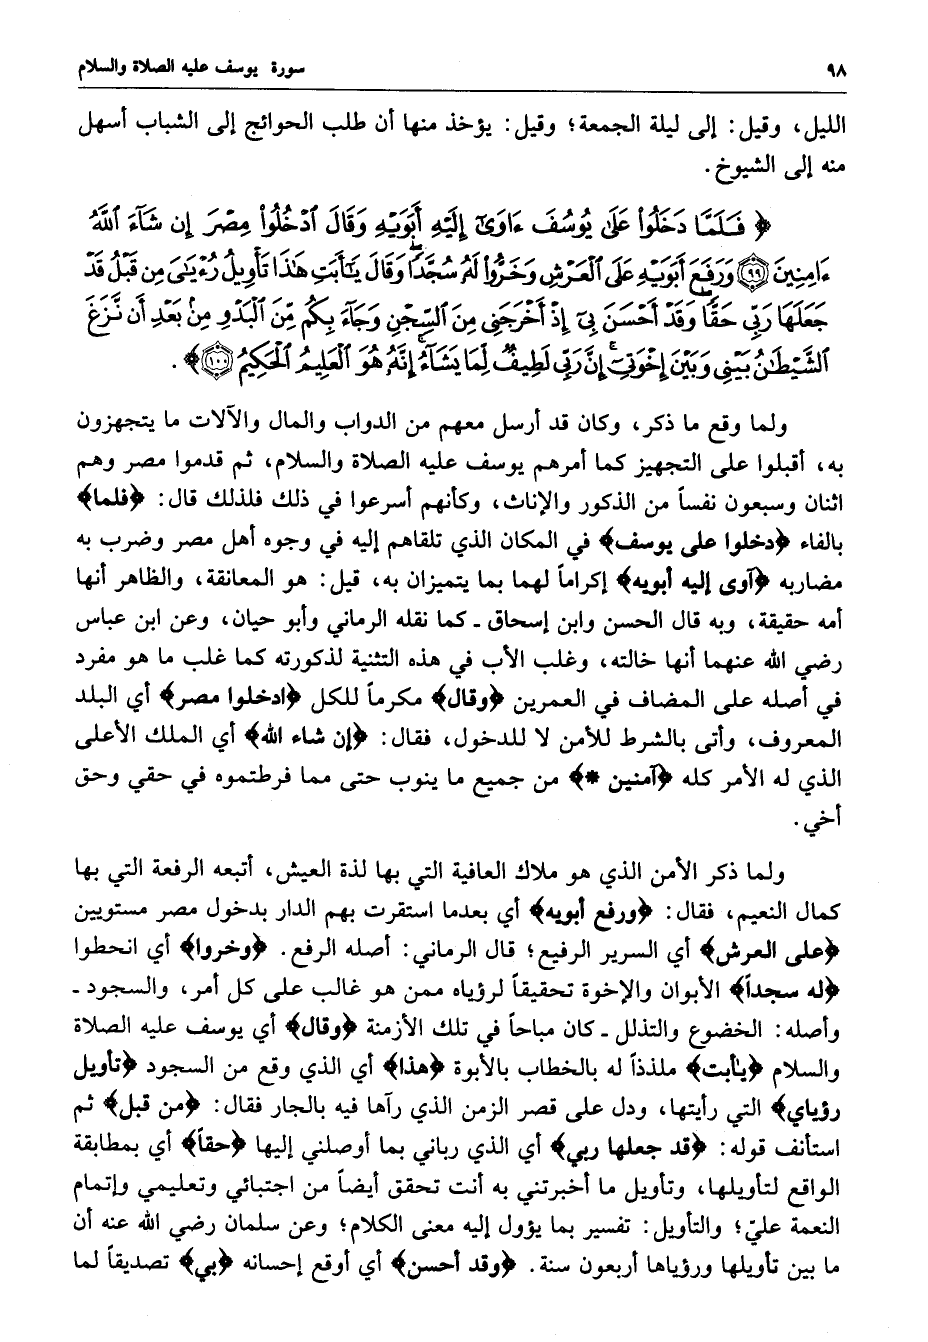 ٩٨ سورة يوسف عليه الصلاة والسلام
الليل، وقيل: إلى ليلة الجمعة؛ وقيل: يؤخذ منها أن طلب الحوائج إلى الشباب أسهل
منه إلى الشيوخ.
﴿ فَلَمَّا دَخَلُواْ عَلَىٰ يُوسُفَ ءَاوَىٰٓ إِلَيْهِ أَبَوَيْهِ وَقَالَ ٱدْخُلُواْ مِصْرَ إِن شَآءَ ٱللَّهُ
ءَامِنِينَ ﴿٩٩﴾ وَرَفَعَ أَبَوَيْهِ عَلَى ٱلْعَرْشِ وَخَرُّواْ لَهُۥ سُجَّدًا ۖ وَقَالَ يَٰٓأَبَتِ هَٰذَا تَأْوِيلُ رُءْيَٰىَ مِن قَبْلُ قَدْ
جَعَلَهَا رَبِّى حَقًّا ۖ وَقَدْ أَحْسَنَ بِىٓ إِذْ أَخْرَجَنِى مِنَ ٱلسِّجْنِ وَجَآءَ بِكُم مِّنَ ٱلْبَدْوِ مِنۢ بَعْدِ أَن نَّزَغَ
ٱلشَّيْطَٰنُ بَيْنِى وَبَيْنَ إِخْوَتِىٓ ۚ إِنَّ رَبِّى لَطِيفٌ لِّمَا يَشَآءُ ۚ إِنَّهُۥ هُوَ ٱلْعَلِيمُ ٱلْحَكِيمُ ﴿١٠٠﴾ ﴾.
ولما وقع ما ذكر، وكان قد أرسل معهم من الدواب والمال والآلات ما يتجهزون
به، أقبلوا على التجهيز كما أمرهم يوسف عليه الصلاة والسلام، ثم قدموا مصر وهم
اثنان وسبعون نفساً من الذكور والإناث، وكأنهم أسرعوا في ذلك فلذلك قال: ﴿فلما﴾
بالفاء ﴿دخلوا على يوسف﴾ في المكان الذي تلقاهم إليه في وجوه أهل مصر وضرب به
مضاربه ﴿آوى إليه أبويه﴾ إكراماً لهما بما يتميزان به، قيل: هو المعانقة، والظاهر أنها
أمه حقيقة، وبه قال الحسن وابن إسحاق ـ كما نقله الرماني وأبو حيان، وعن ابن عباس
رضي الله عنهما أنها خالته، وغلب الأب في هذه التثنية لذكورته كما غلب ما هو مفرد
في أصله على المضاف في العمرين ﴿وقال﴾ مكرماً للكل ﴿ادخلوا مصر﴾ أي البلد
المعروف، وأتى بالشرط للأمن لا للدخول، فقال: ﴿إن شاء الله﴾ أي الملك الأعلى
الذي له الأمر كله ﴿آمنين *﴾ من جميع ما ينوب حتى مما فرطتموه في حقي وحق
أخي.
ولما ذكر الأمن الذي هو ملاك العافية التي بها لذة العيش، أتبعه الرفعة التي بها
كمال النعيم، فقال: ﴿ورفع أبويه﴾ أي بعدما استقرت بهم الدار بدخول مصر مستويين
﴿على العرش﴾ أي السرير الرفيع؛ قال الرماني: أصله الرفع. ﴿وخروا﴾ أي انحطوا
﴿له سجداً﴾ الأبوان والإخوة تحقيقاً لرؤياه ممن هو غالب على كل أمر، والسجود ـ
وأصله: الخضوع والتذلل ـ كان مباحاً في تلك الأزمنة ﴿وقال﴾ أي يوسف عليه الصلاة
والسلام ﴿يأبت﴾ ملذذاً له بالخطاب بالأبوة ﴿هذا﴾ أي الذي وقع من السجود ﴿تأويل
رؤياي﴾ التي رأيتها، ودل على قصر الزمن الذي رآها فيه بالجار فقال: ﴿من قبل﴾ ثم
استأنف قوله: ﴿قد جعلها ربي﴾ أي الذي رباني بما أوصلني إليها ﴿حقاً﴾ أي بمطابقة
الواقع لتأويلها، وتأويل ما أخبرتني به أنت تحقق أيضاً من اجتبائي وتعليمي وإتمام
النعمة عليّ؛ والتأويل: تفسير بما يؤول إليه معنى الكلام؛ وعن سلمان رضي الله عنه أن
ما بين تأويلها ورؤياها أربعون سنة. ﴿وقد أحسن﴾ أي أوقع إحسانه ﴿بي﴾ تصديقاً لما